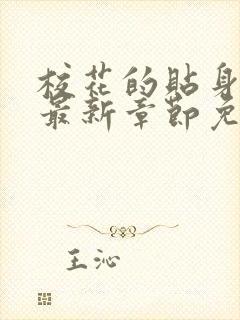 校花的贴身
最新章节免
王沁